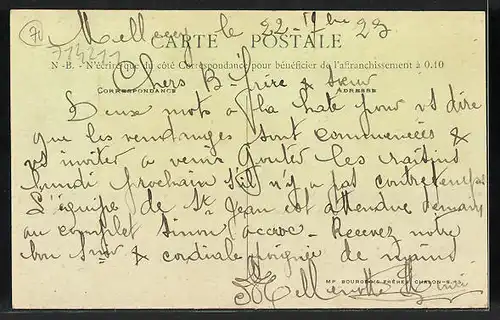 le 22-9bre 23
71
714211
CARTE POSTALE
N-B.- N'écrire que du côté Correspondance pour bénéficier de l'affranchissement à 0.10
Chers B-frère & sœur
CORRESPONDANCE ADRESSE
Deux mots à la hate pour vs dire
que les vendanges sont commencées &
vs inviter a venir gouter les raisins
lundi prochain s'il n'y a pas contretemps
L'équipe de St Jean est attendue demain
au complet sinon accroc- Recevez notre
bon & cordiale poignée de mains
MP. BOURGEOIS FRÈRES CHALON-S-S